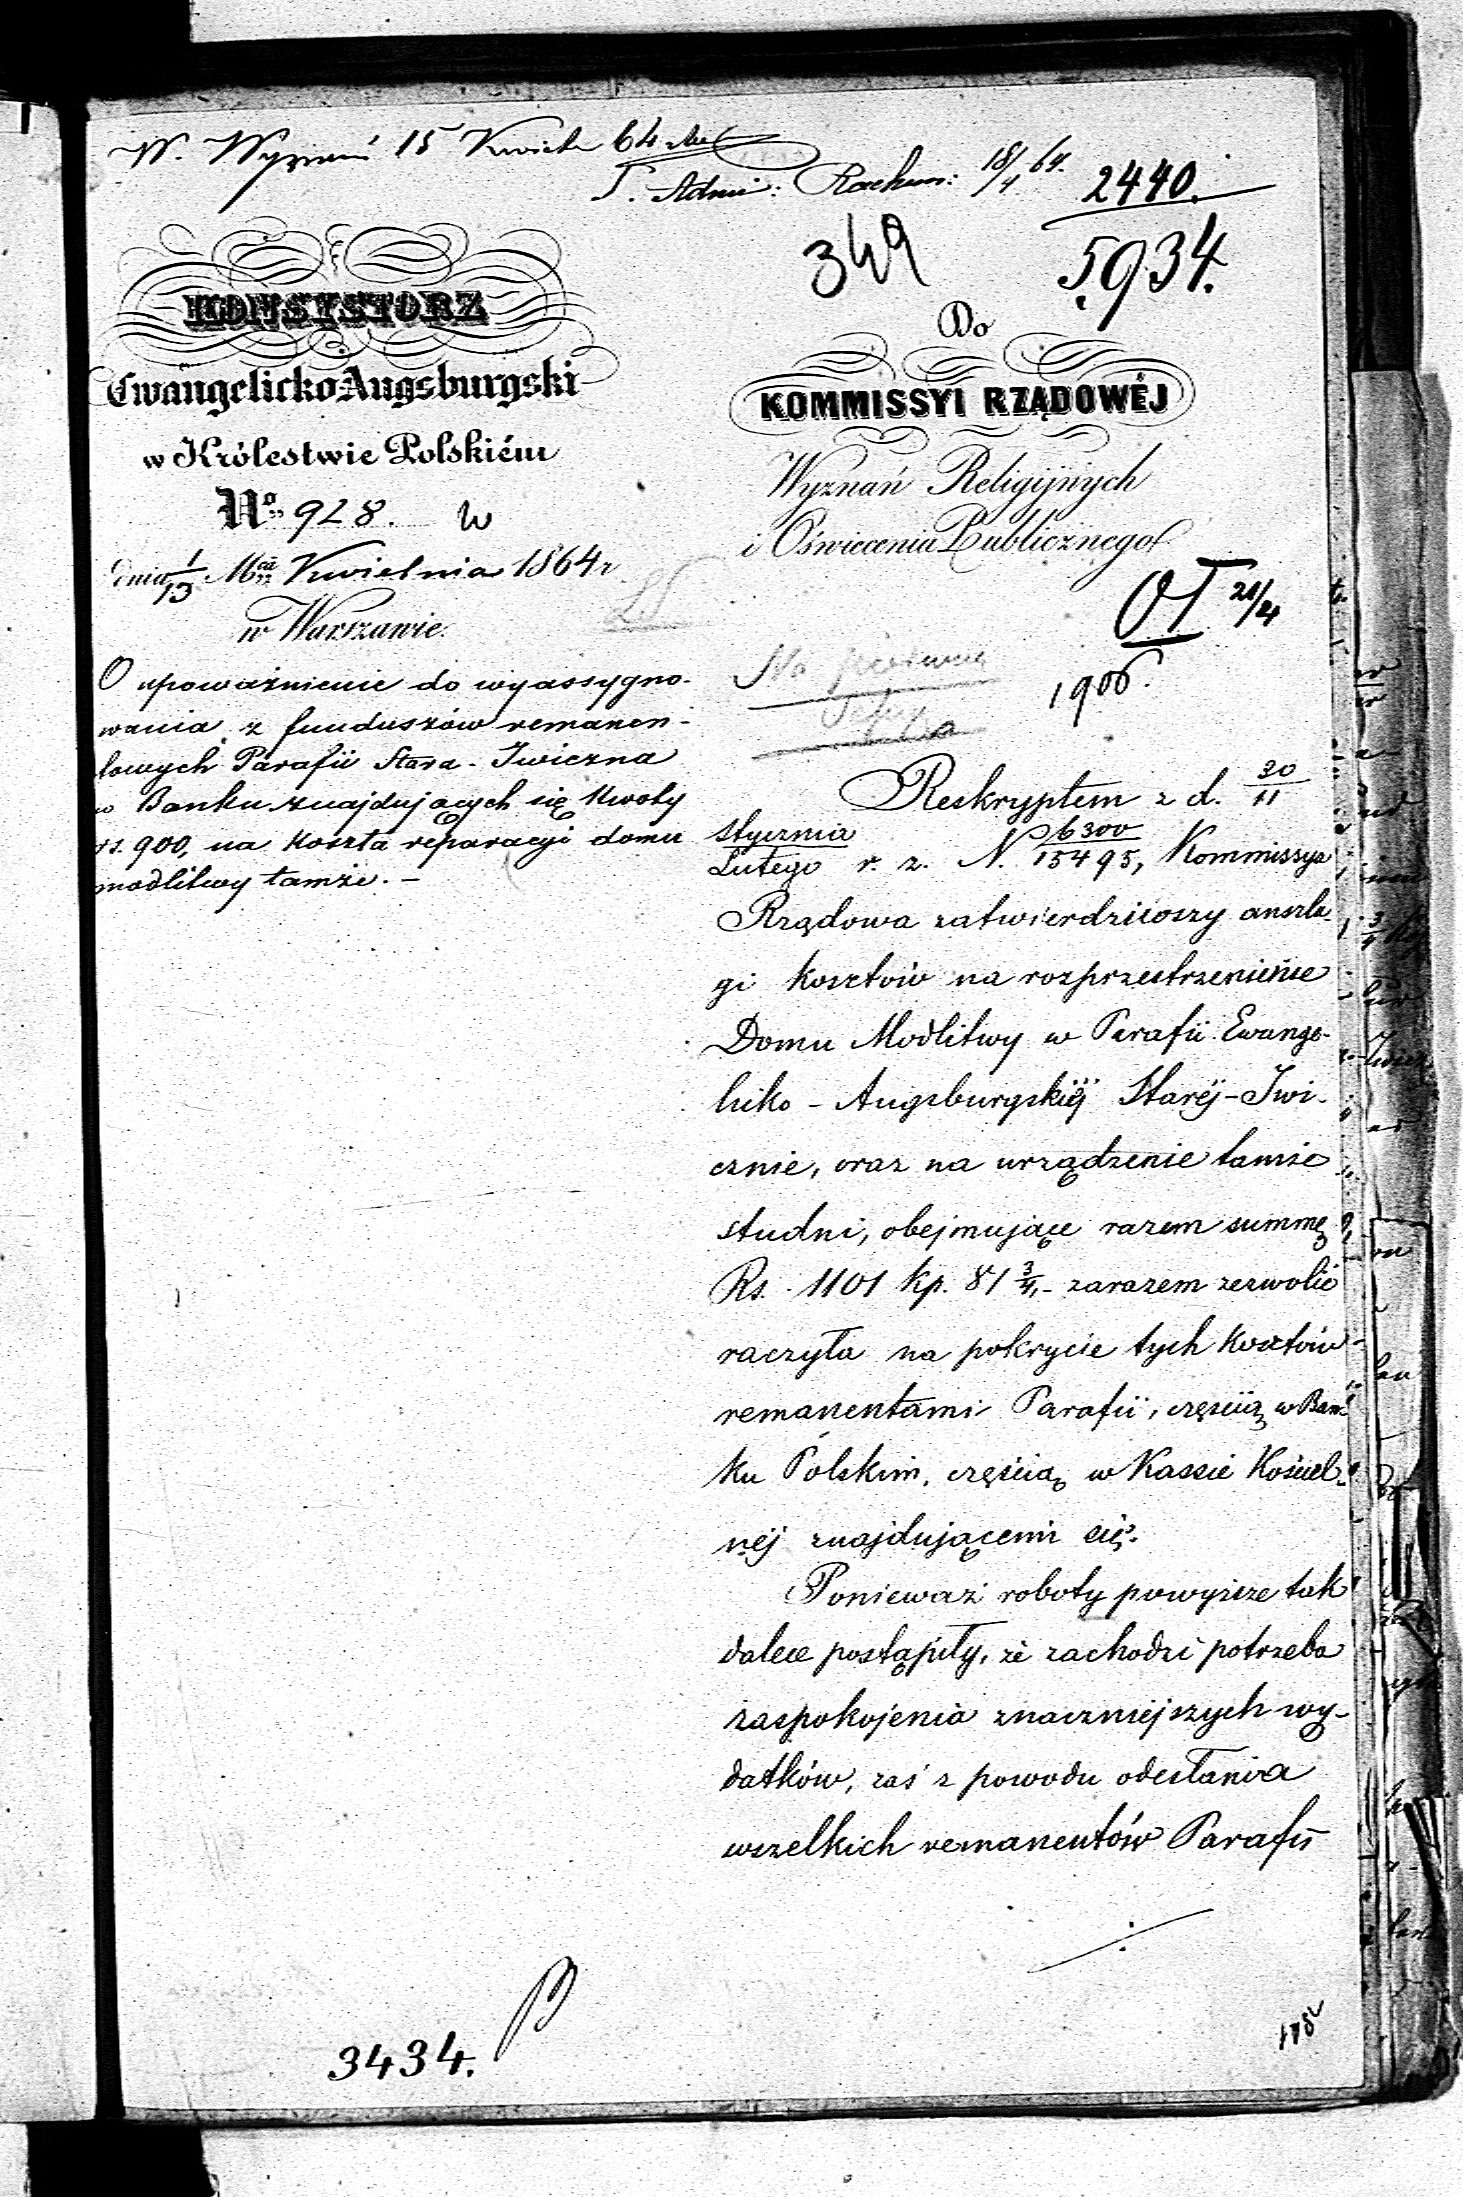 W. Wyznań 15 Kwiet 64
S. Admi: Rachun: 18/4 64.
2440.
349
5934.
KONSYSTORZ
Ewangelicko-Augsburgski
w Królestwie Polskiém
No 928. W
dnia 1/13 Mca Kwietnia 1864 r
w Warszawie.
O upoważnienie do wyassygno-
wania z funduszów remanen-
towych Parafii Stara-Iwiczna
w Banku znajdujących się kwoty
rs. 900, na koszta reparacyi domu
modlitwy tamże. –
Do
KOMMISSYI RZĄDOWÉJ
Wyznań Religijnych
i Oświecenia Publicznego
OT 21/4
1906.
Reskryptem z d. 30/11
Stycznia/Lutego r. z. N. 6300/15495, Kommissya
Rządowa zatwierdziwszy anszla-
gi kosztów na rozprzestrzenienie
Domu Modlitwy w Parafii Ewange-
licko-Augsburgskiéj Staréj-Iwi-
cznie, oraz na urządzenie tamże
studni, obejmujące razem summę
Rs. 1101 kp. 81 3/4, – zarazem zezwolić
raczyła na pokrycie tych kosztów
remanentami Parafii, częścią w Ban-
ku Polskim, częścią w Kassie Kościel-
néj znajdującemi się.
Ponieważ roboty powyższe tak
dalece postąpiły, że zachodzi potrzeba
zaspokojenia znaczniejszych wy-
datków, zaś z powodu odesłania
wszelkich remanentów Parafii
3434.